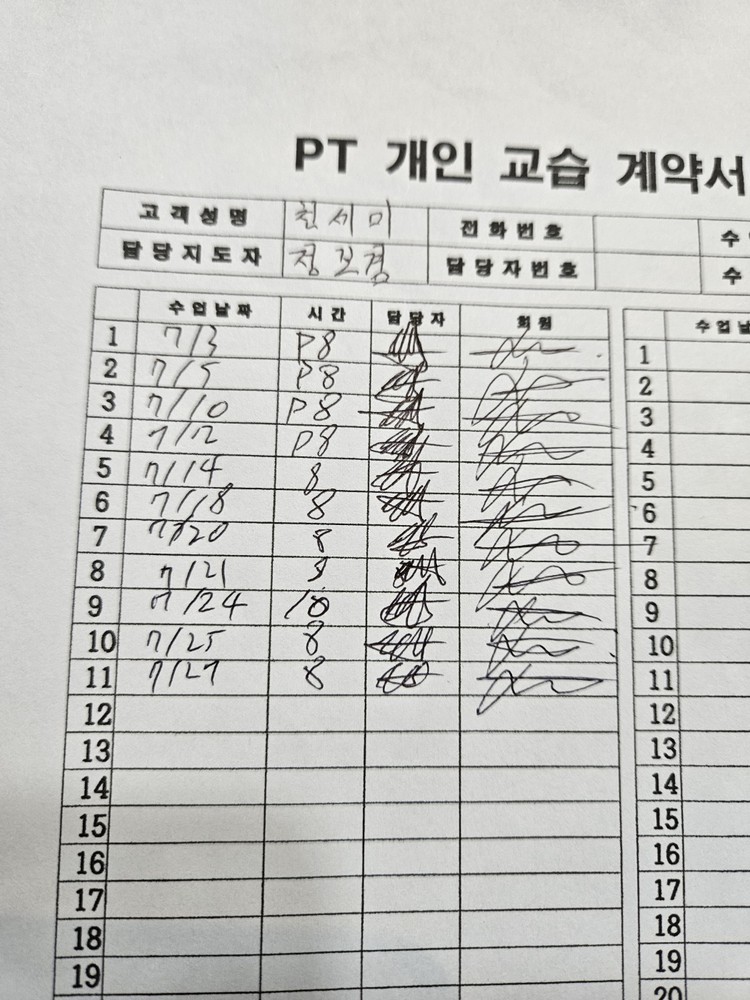 PT 개인 교습 계약서
고객성명 천세미 전화번호 수
담당지도자 정보경 담당자번호 수
수업날짜 시간 담당자 회원 수업날
1 7/3 P8 1
2 7/5 P8 2
3 7/10 P8 3
4 7/12 P8 4
5 7/14 8 5
6 7/18 8 6
7 7/20 8 7
8 7/21 8
9 7/24 10 9
10 7/25 8 10
11 7/27 8 11
12 12
13 13
14 14
15 15
16 16
17 17
18 18
19 19
20